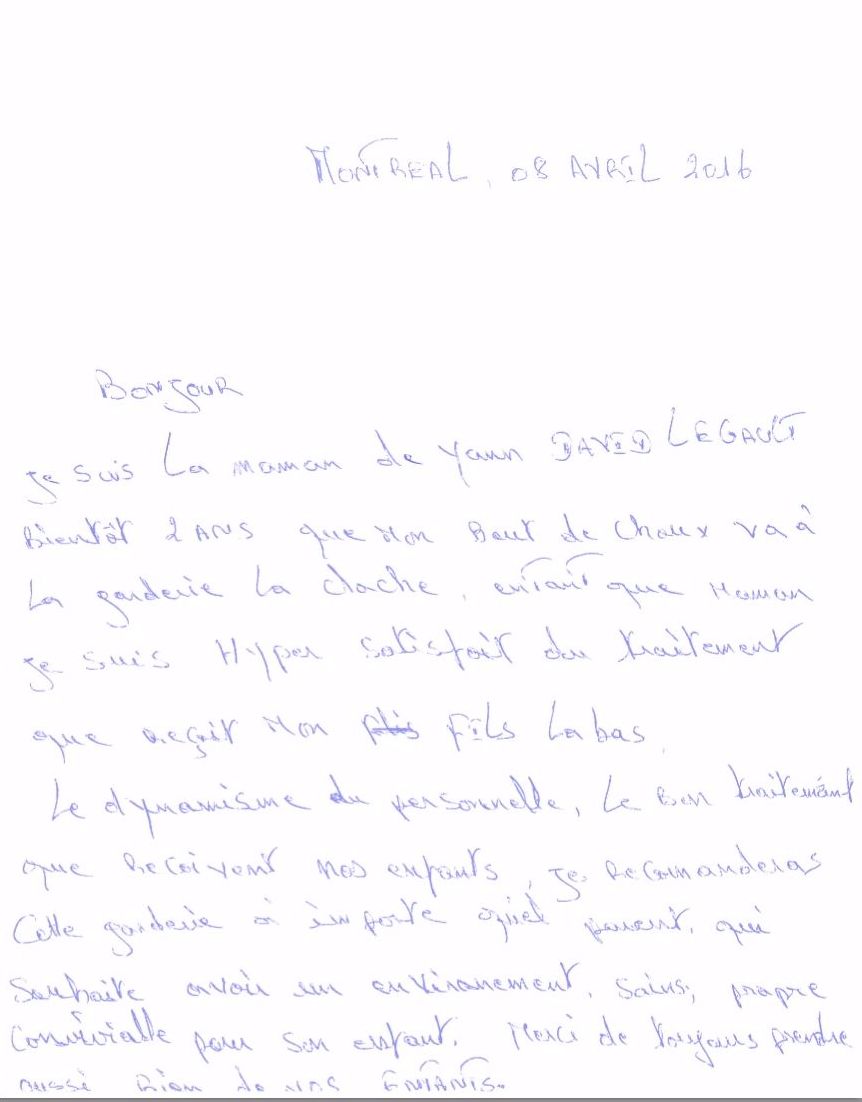 MONTREAL, 08 AVRIL 2016
BONJOUR
Je suis La maman de Yann DAVID LEGAULT
Bientôt 2 ANS que mon Bout de Choux va à
La garderie La cloche, entant que Maman
Je suis Hyper satisfait du traitement
que reçoit mon fils Labas
Le dynamisme du personnelle, Le Bon traitement
que Reçoivent nos enfants, Je Recomanderas
Cette garderie à importe quel parent, qui
Souhaite avoir un environement, sains, propre
Convivialle pour son enfant. Merci de toujours prendre
aussi Bien de nos ENFANTS.